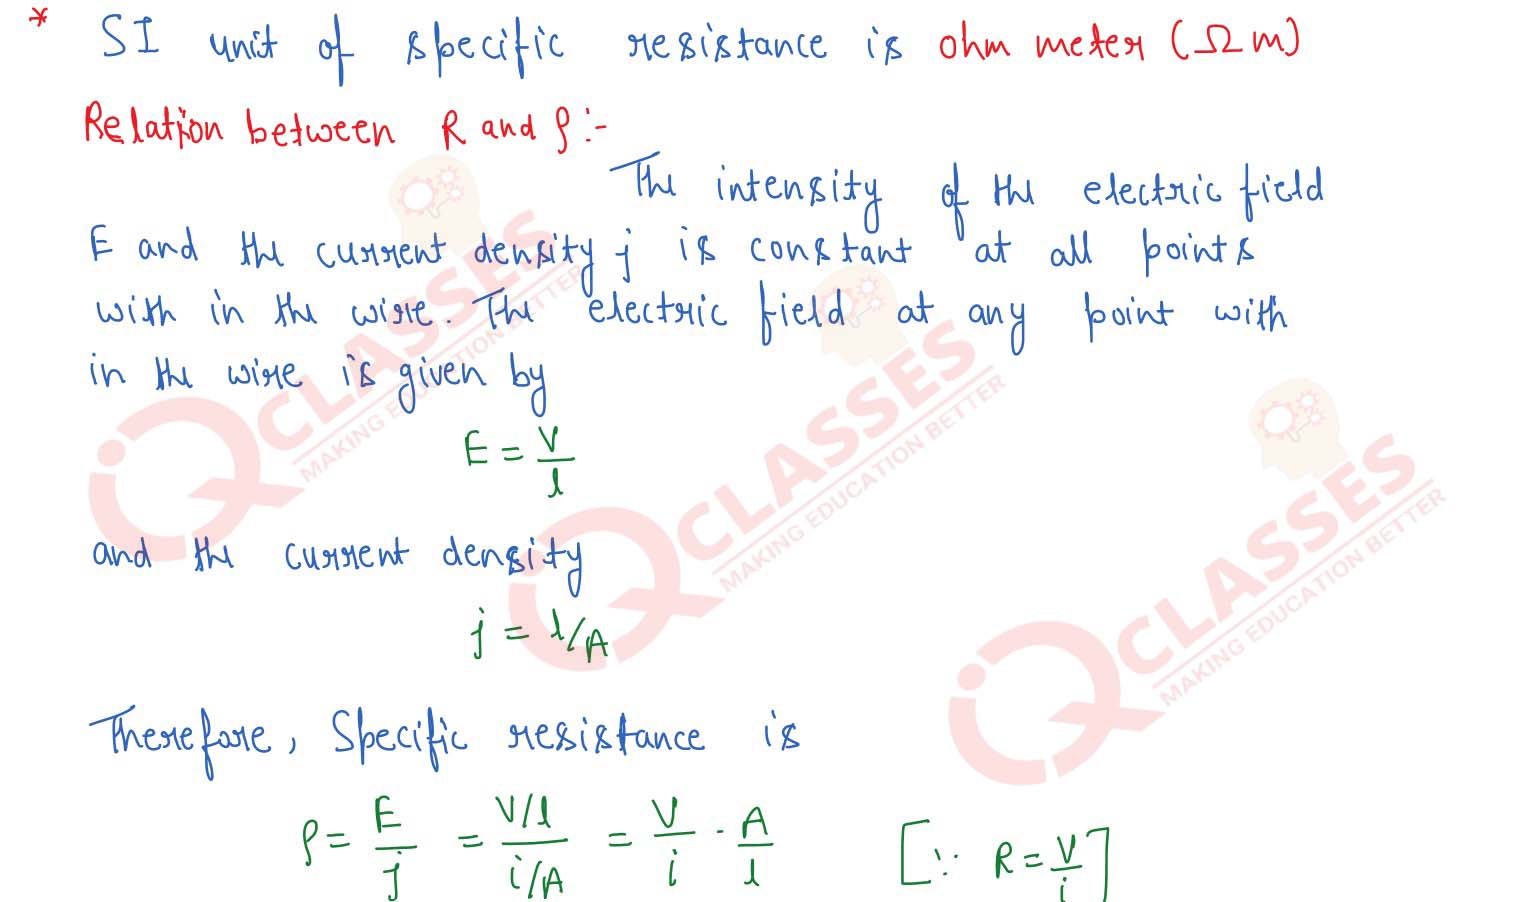 * SI unit of specific resistance is ohm meter (Ωm)
Relation between R and ρ :-
The intensity of the electric field
E and the current density j is constant at all points
with in the wire. The electric field at any point with
in the wire is given by
E = V/l
and the current density
j = l/A
Therefore, Specific resistance is
ρ = E/j = V/l / i/A = V/i · A/l [∵ R = V/i]
iQ CLASSES
MAKING EDUCATION BETTER
iQ CLASSES
MAKING EDUCATION BETTER
iQ CLASSES
MAKING EDUCATION BETTER